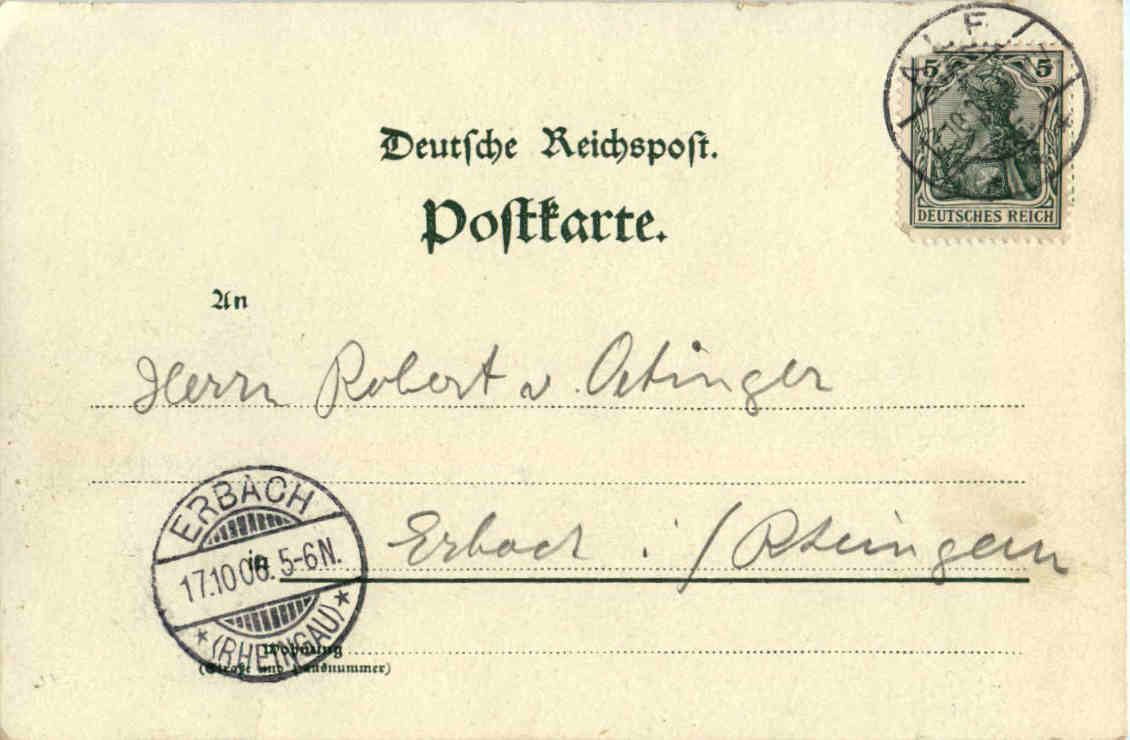 5 5
DEUTSCHES REICH
Deutsche Reichspost.
Postkarte.
An
Herrn Robert v. Oetinger
Erbach i/Rheingau
in
ERBACH
17.10 06. 5-6 N.
* (RHEINGAU) *
Wohnung
(Straße und Hausnummer)